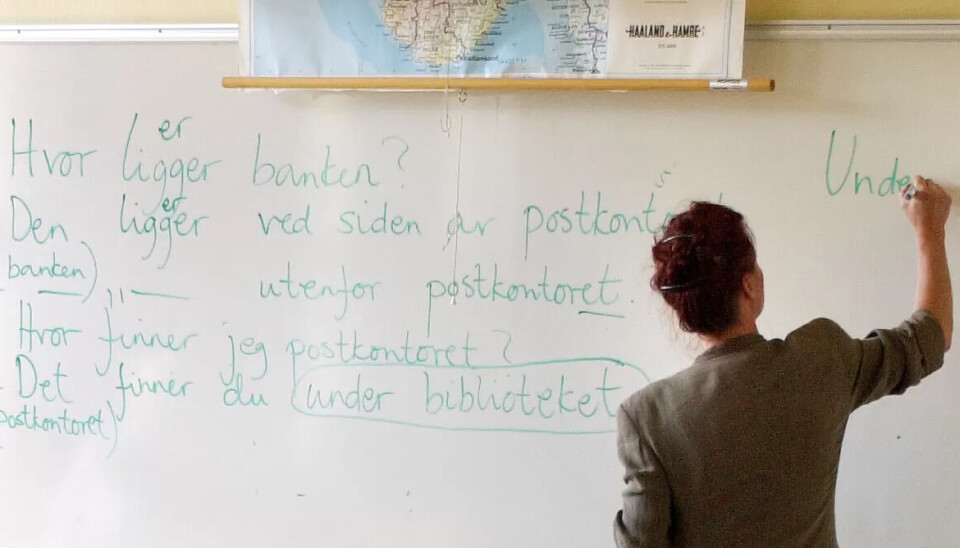 HAALAND & HAMRE
er
Hvor ligger banken?
er
Den ligger ved siden av
banken) " utenfor postkontoret.
Hvor finner jeg postkontoret?
Det finner du under biblioteket
postkontoret)
Unde